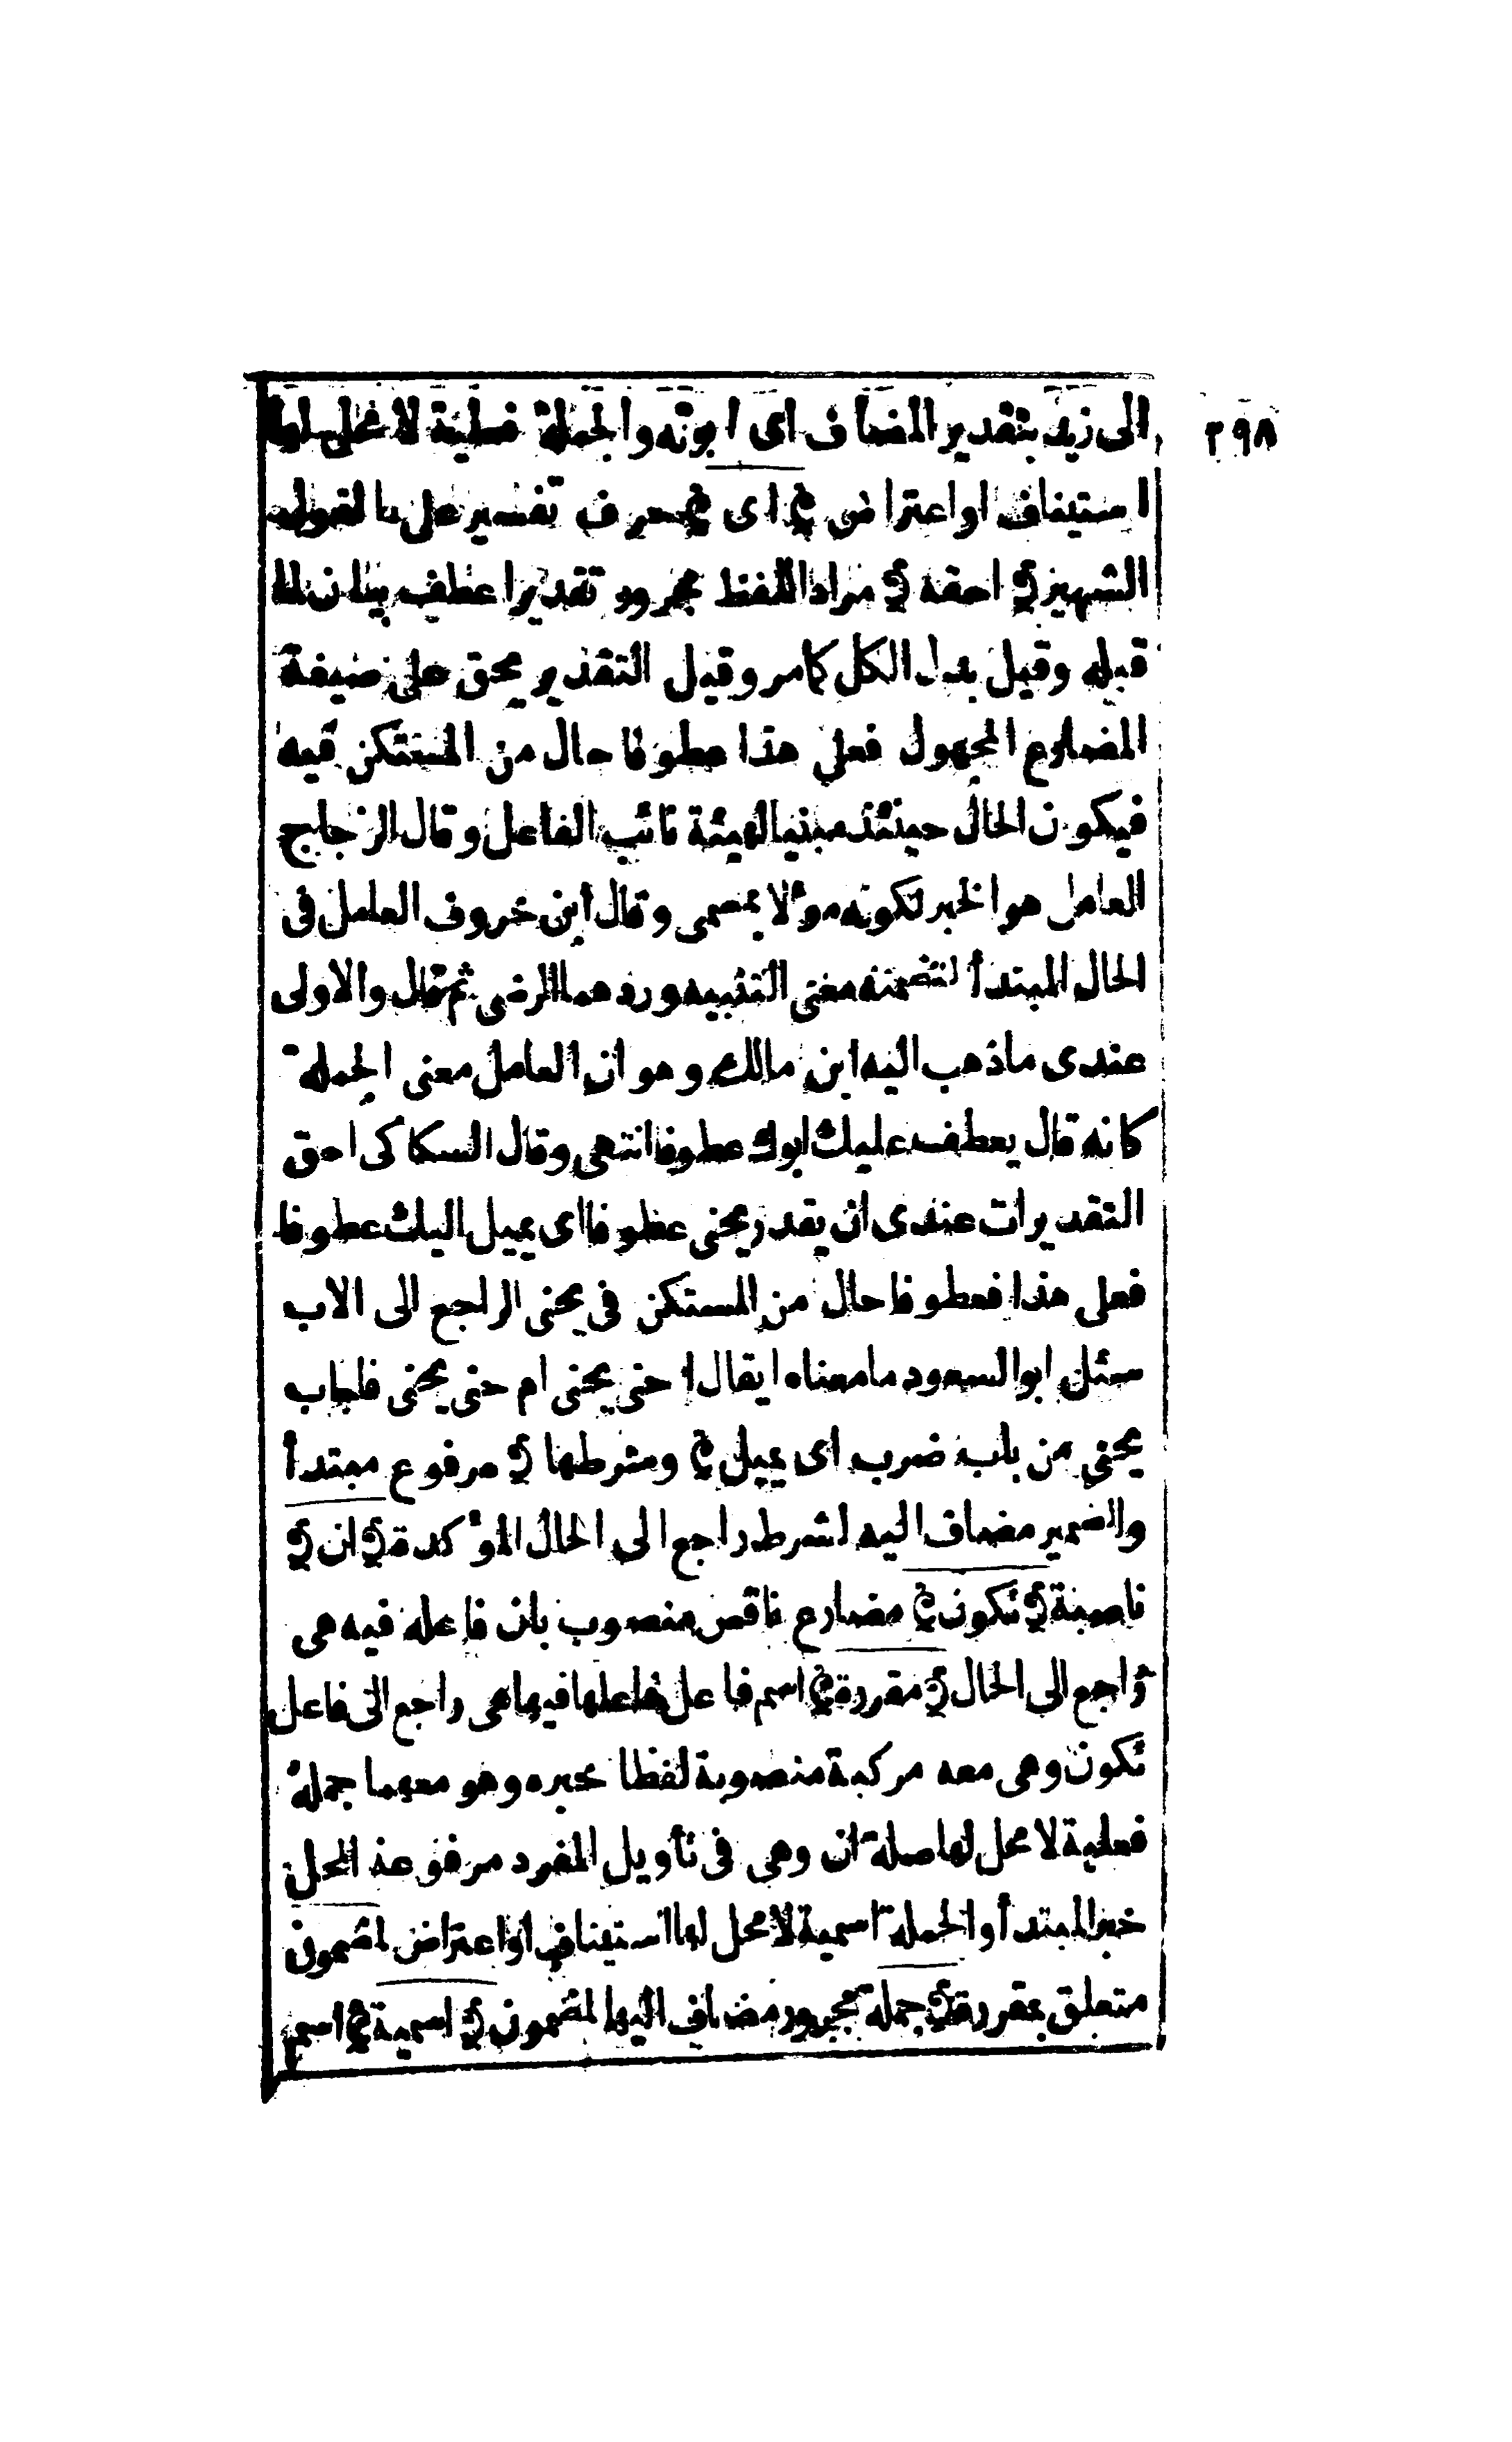 ٣٩٨
الى زيد بتقدير المضاف اى ابوته والجملة فعلية لا محل لها
استيناف او اعتراض ﴿ اى ﴾ حرف تفسير على القول
الشهير ﴿ احقه ﴾ مراد اللفظ مجرور تقديرا عطف بيان لما
قبله وقيل بدل الكل كما مر وقيل التقدير يحق على صيغة
المضارع المجهول فعلى هذا عطوفا حال من المستكن فيه
فيكون الحال حينئذ مبنيا لهيئة نائب الفاعل وقال الزجاج
العامل هو الخبر لكونه مؤلا بمسمى وقال ابن خروف العامل فى
الحال المبتدأ لتضمنه معنى التنبيه وردهما الرضى ثم قال والاولى
عندى ما ذهب اليه ابن مالك وهو ان العامل معنى الجملة
كانه قال يعطف عليك ابوك عطوفا انتهى وقال السكاكى احق
التقديرات عندى ان يقدر يحنى عطوفا اى يميل اليك عطوفا
فعلى هذا فعطوفا حال من المستكن فى يحنى الراجع الى الاب
سئل ابو السعود ما معناه ايقال احنى يحنى ام حنى يحنى فاجاب
يحنى من باب ضرب اى يميل ﴿ وشرطها ﴾ مرفوع مبتدأ
والضمير مضاف اليه لشرط راجع الى الحال المؤكدة ﴿ ان ﴾
ناصبة ﴿ تكون ﴾ مضارع ناقص منصوب بان فاعله فيه هى
راجع الى الحال ﴿ مقررة ﴾ اسم فاعل فاعلها فيها هى راجع الى فاعل
تكون وهى معه مركبة منصوبة لفظا خبره وهو معهما جملة
فعلية لا محل لها صلة ان وهى فى تأويل المفرد مرفوعة المحل
خبر المبتدأ والجملة اسمية لا محل لها استيناف او اعتراض لمضمون
متعلق بمقررة ﴿ جملة ﴾ مجرور مضاف اليها لمضمون ﴿ اسمية ﴾ اسم